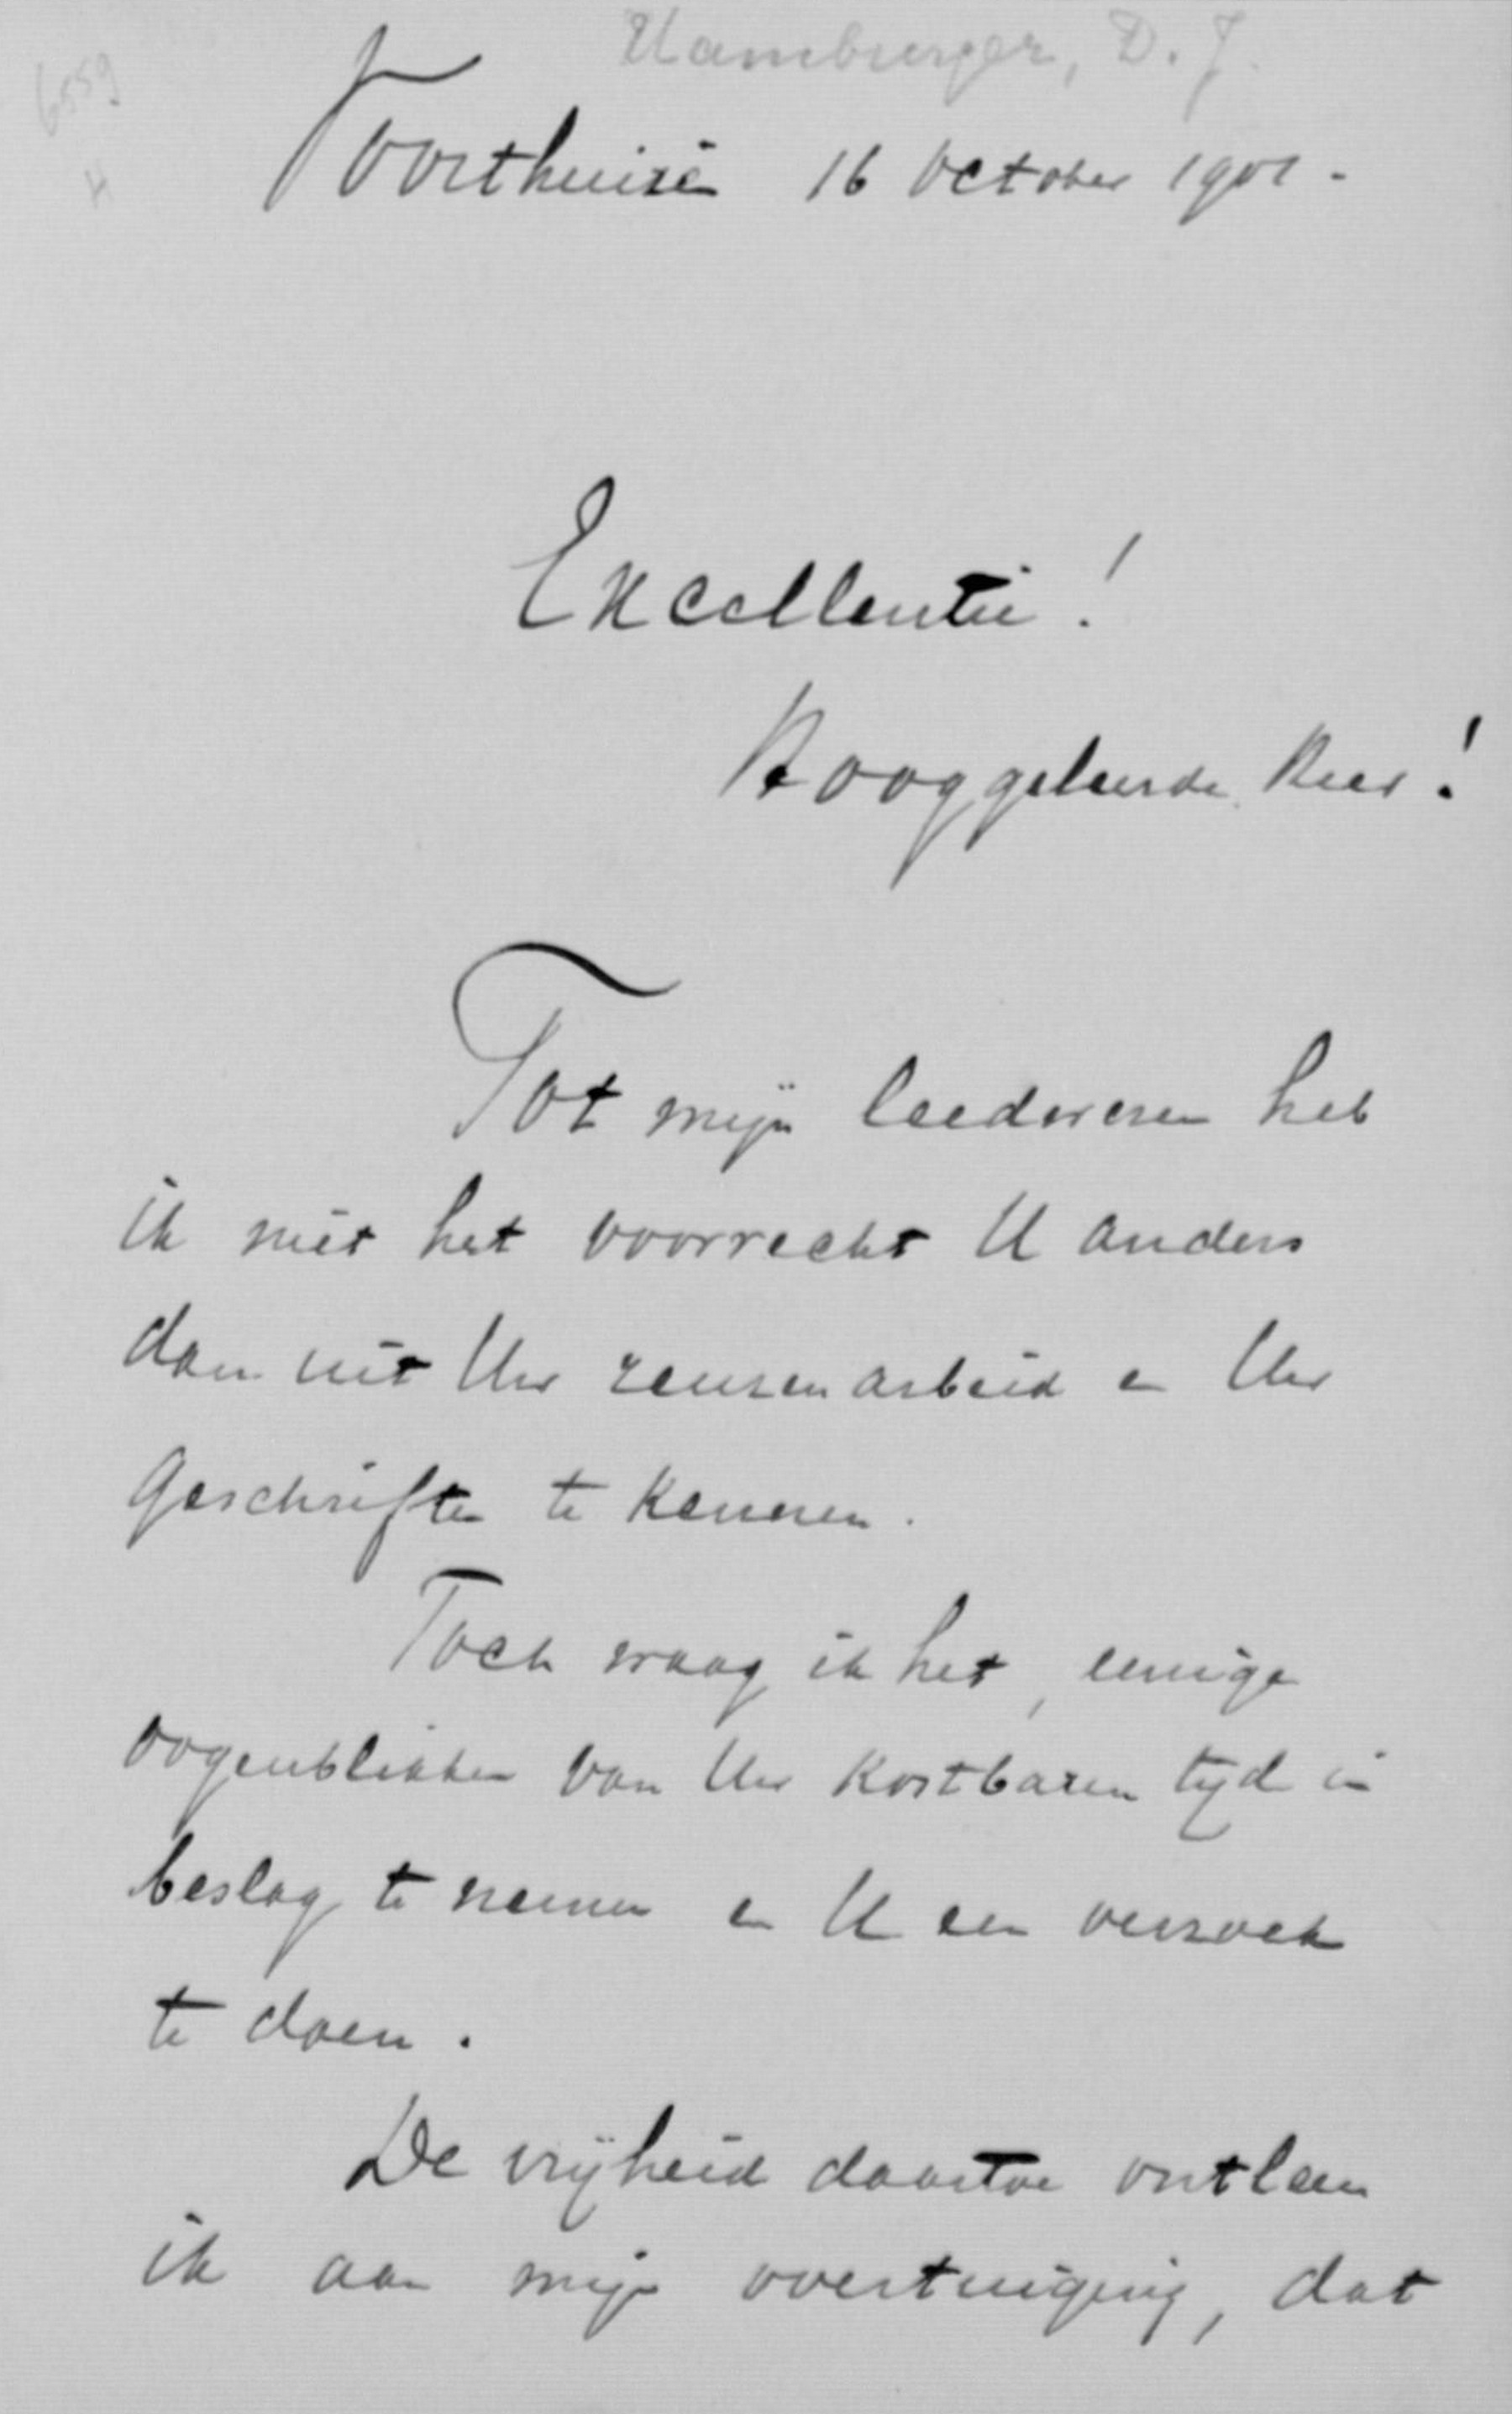 Hamburger, D. J.
6559
H
Voorthuizen 16 October 1901.
Excellentie!
Hooggeleerde Heer!
Tot mijn leedwezen heb
ik niet het voorrecht U anders
dan uit Uw reuzenarbeid en Uw
geschriften te kennen.
Toch waag ik het, eenige
oogenblikken van Uw kostbaren tijd in
beslag te nemen en U een verzoek
te doen.
De vrijheid daartoe ontleen
ik aan mijn overtuiging, dat